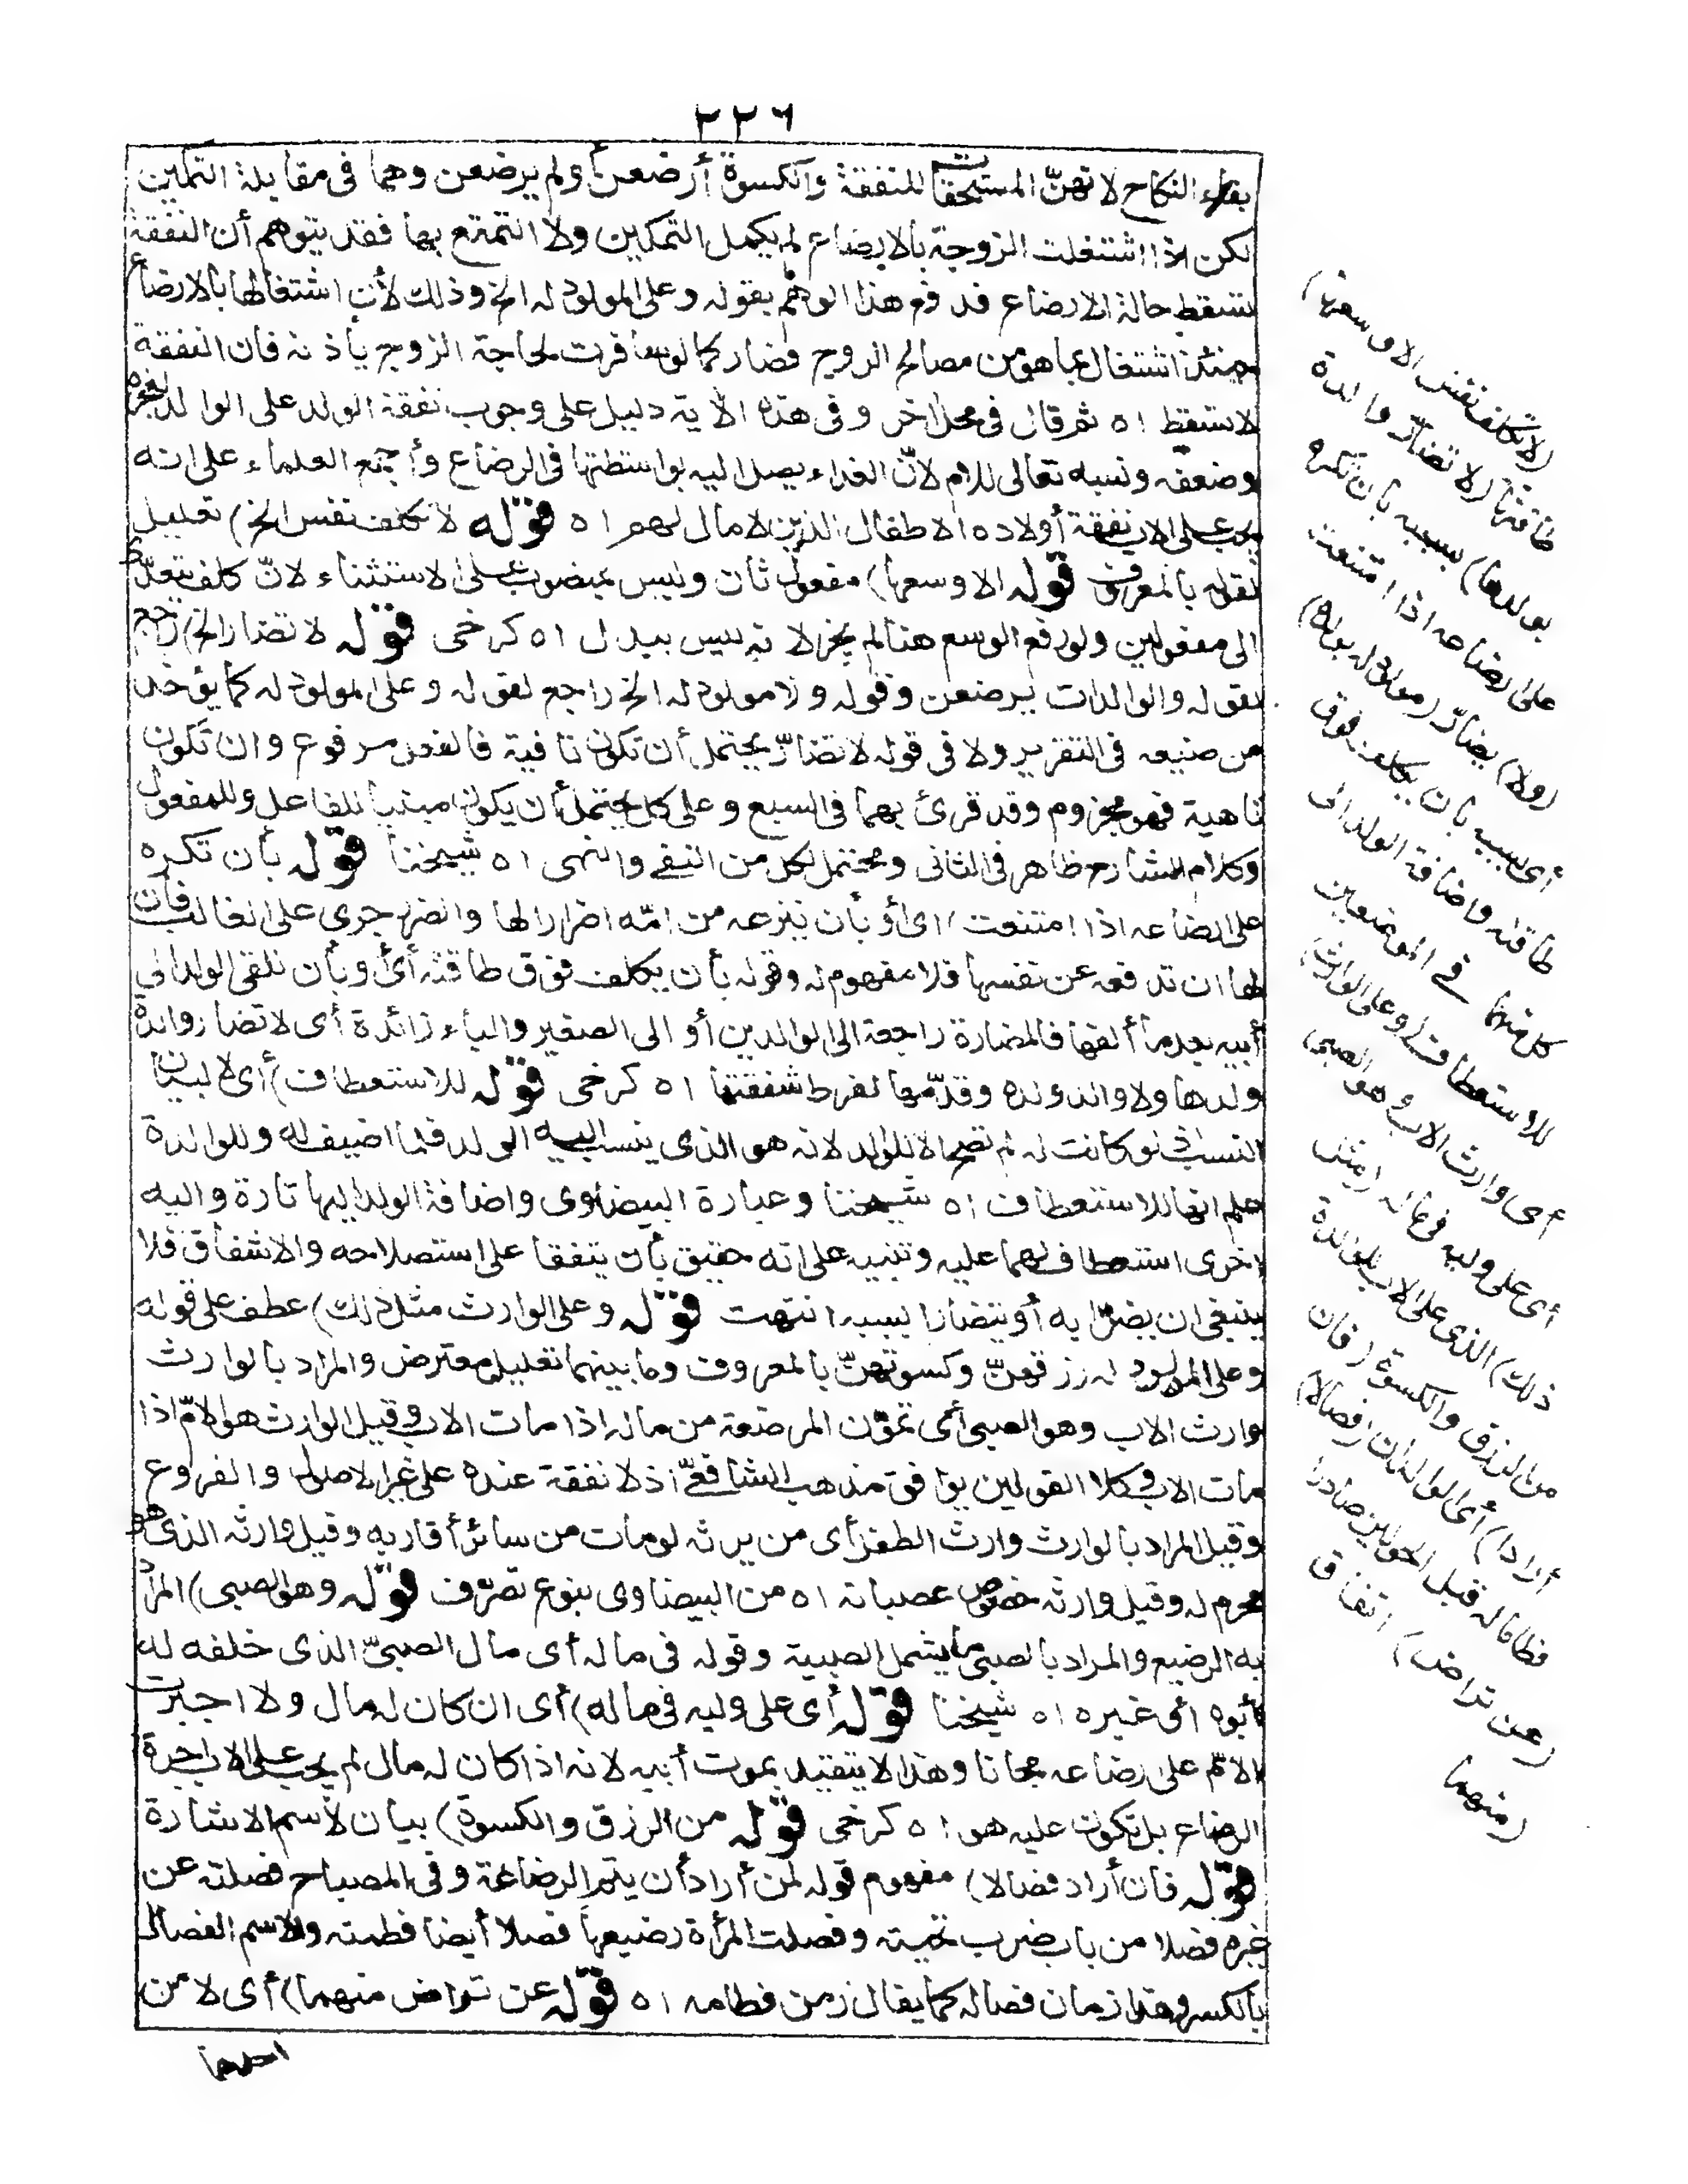 ٢٢٦
بقاء النكاح لانهنّ المستحقات للنفقة والكسوة أرضعن أو لم يرضعن وهما فى مقابلة التمكين
لكن اذا اشتغلت الزوجة بالارضاع لم يكمل التمكين ولا التمتع بها فقد يتوهم أن النفقة
تسقط حالة الارضاع فدفع هذا الوهم بقوله وعلى المولود له الخ وذلك لأن اشتغالها بالارضاع
حينئذ اشتغال بما هو من مصالح الزوج فصار كما لو سافرت لحاجة الزوج باذنه فان النفقة
لا تسقط اه ثم قال فى محل اخر وفى هذه الاية دليل على وجوب نفقة الولد على الوالد لعجزه
وضعفه ونسبه تعالى للام لانّ الغذاء يصل اليه بواسطتها فى الرضاع وأجمع العلماء على انه
يجب على الاب نفقة أولاده الاطفال الذين لا مال لهم اه قوله لا تكلف نفس الخ) تعليل
لقوله بالمعروف قوله الا وسعها) مفعول ثان وليس بمنصوب على الاستثناء لانّ كلف يتعدّى
الى مفعولين ولو رفع الوسع هنا لم يجز لانه ليس ببدل اه كرخى قوله لا تضار الخ) راجع
لقوله والوالدات يرضعن وقوله ولا مولود له الخ راجع لقوله وعلى المولود له كما يؤخذ
من صنيعه فى التقرير ولا فى قوله لا تضارّ يحتمل أن تكون نافية فالفعل مرفوع وان تكون
ناهية فهو مجزوم وقد قرئ بهما فى السبع وعلى كل يحتمل أن يكون مبنيا للفاعل وللمفعول
وكلام الشارح ظاهر فى الثانى ومحتمل لكل من النفى والنهى اه شيخنا قوله بأن تكره
على ارضاعه اذا امتنعت) اى أو بأن ينزعه من امّه اضرارا لها والضرر جرى على الغالب فان
لها ان تدفعه عن نفسها فلا مفهوم له وقوله بأن يكلف فوق طاقته أى أو بأن تلقى الولد الى
أبيه بعد ما ألفها فالمضارة راجعة الى الوالدين أو الى الصغير والباء زائدة أى لا تضار والدة
ولدها ولا والد ولده وقدّمها لفرط شفقتها اه كرخى قوله للاستعطاف) أى لا لبيان
النسب اذ لو كانت له لم تصح الا للوالد لانه هو الذى ينسب اليه الولد فلما اضيف له وللوالدة
علم انها للاستعطاف اه شيخنا وعبارة البيضاوى واضافة الولد اليها تارة واليه
اخرى استعطاف لهما عليه وتنبيه على انه حقيق بأن يتفقا على استصلاحه والاشفاق فلا
ينبغى ان يضرّا به أو يتضارا بسببه انتهت قوله وعلى الوارث مثل ذلك) عطف على قوله
وعلى المولود له رزقهنّ وكسوتهنّ بالمعروف وما بينهما تعليل معترض والمراد بالوارث
وارث الاب وهو الصبى أى تموّن المرضعة من ماله اذا مات الاب وقيل الوارث هو الامّ اذا
مات الاب وكلا القولين يوافق مذهب الشافعىّ اذ لا نفقة عنده على غير الاصول والفروع
وقيل المراد بالوارث وارث الطفل أى من يرثه لو مات من سائر أقاربه وقيل وارثه الذى هو
محرم له وقيل وارثه خصوص عصباته اه من البيضاوى بنوع تصرّف قوله وهو الصبى) المراد
به الرضيع والمراد بالصبى ما يشمل الصبية وقوله فى ماله أى مال الصبىّ الذى خلفه له
أبوه أى غيره اه شيخنا قوله أى على وليه فى ماله) أى ان كان له مال ولا اجبرت
الامّ على رضاعه مجانا وهذا لا يتقيد بموت أبيه لانه اذا كان له مال لم يجب على الاب اجرة
الرضاع بل تكون عليه هو اه كرخى قوله من الرزق والكسوة) بيان لأسم الاشارة
قوله فان أراد فصالا) مفهوم قوله لمن أراد أن يتم الرضاعة وفى المصباح فصلته عن
غيره فصلا من باب ضرب نحيته وفصلت المرأة رضيعها فصلا أيضا فطمته والاسم الفصال
بالكسر وهذا زمان فصاله كما يقال زمن فطامه اه قوله عن تراض منهما) أى لا من
احدهما
(لا تكلف نفس الا وسعها)
طاقتها (لا تضارّ والدة
بولدها) بسببه بان تكره
على ارضاعه اذا امتنعت
(ولا) يضارّ (مولود له بولده)
أى بسببه بان يكلف فوق
طاقته واضافة الولد الى
كل منهما فى الموضعين
للاستعطاف (وعلى الوارث)
أى وارث الاب وهو الصبى
أى على وليه فى ماله (مثل
ذلك) الذى على الاب للوالدة
من الرزق والكسوة (فان
أرادا) أى الوالدان (فصالا)
فطاما له قبل الحولين صادرا
(عن تراض) اتفاق
(منهما